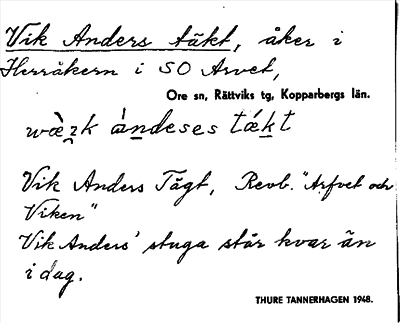 Vik Anders täkt, åker i
Herråkern i SO Arvet,
Ore sn, Rättviks tg, Kopparbergs län.
àndeses tákt
Vik Anders Tägt, Revb. "Arfvet och
Viken"
Vik Anders' stuga står kvar än
i dag.
THURE TANNERHAGEN 1948.